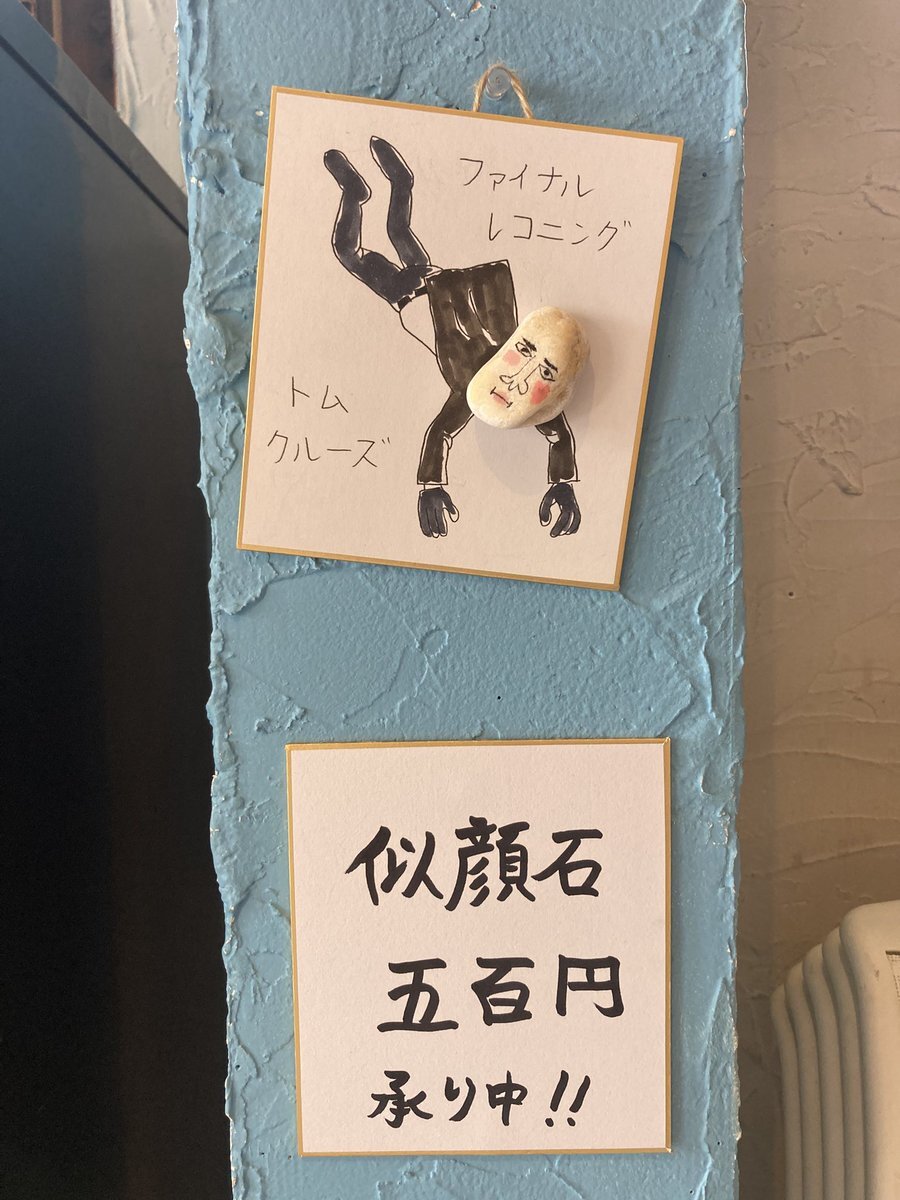 ファイナル
レコニング
トム
クルーズ
似顔石
五百円
承り中!!